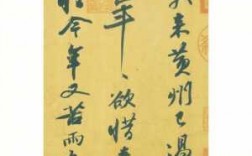 我來黃州已過
年〻欲惜春
惜今年又苦雨